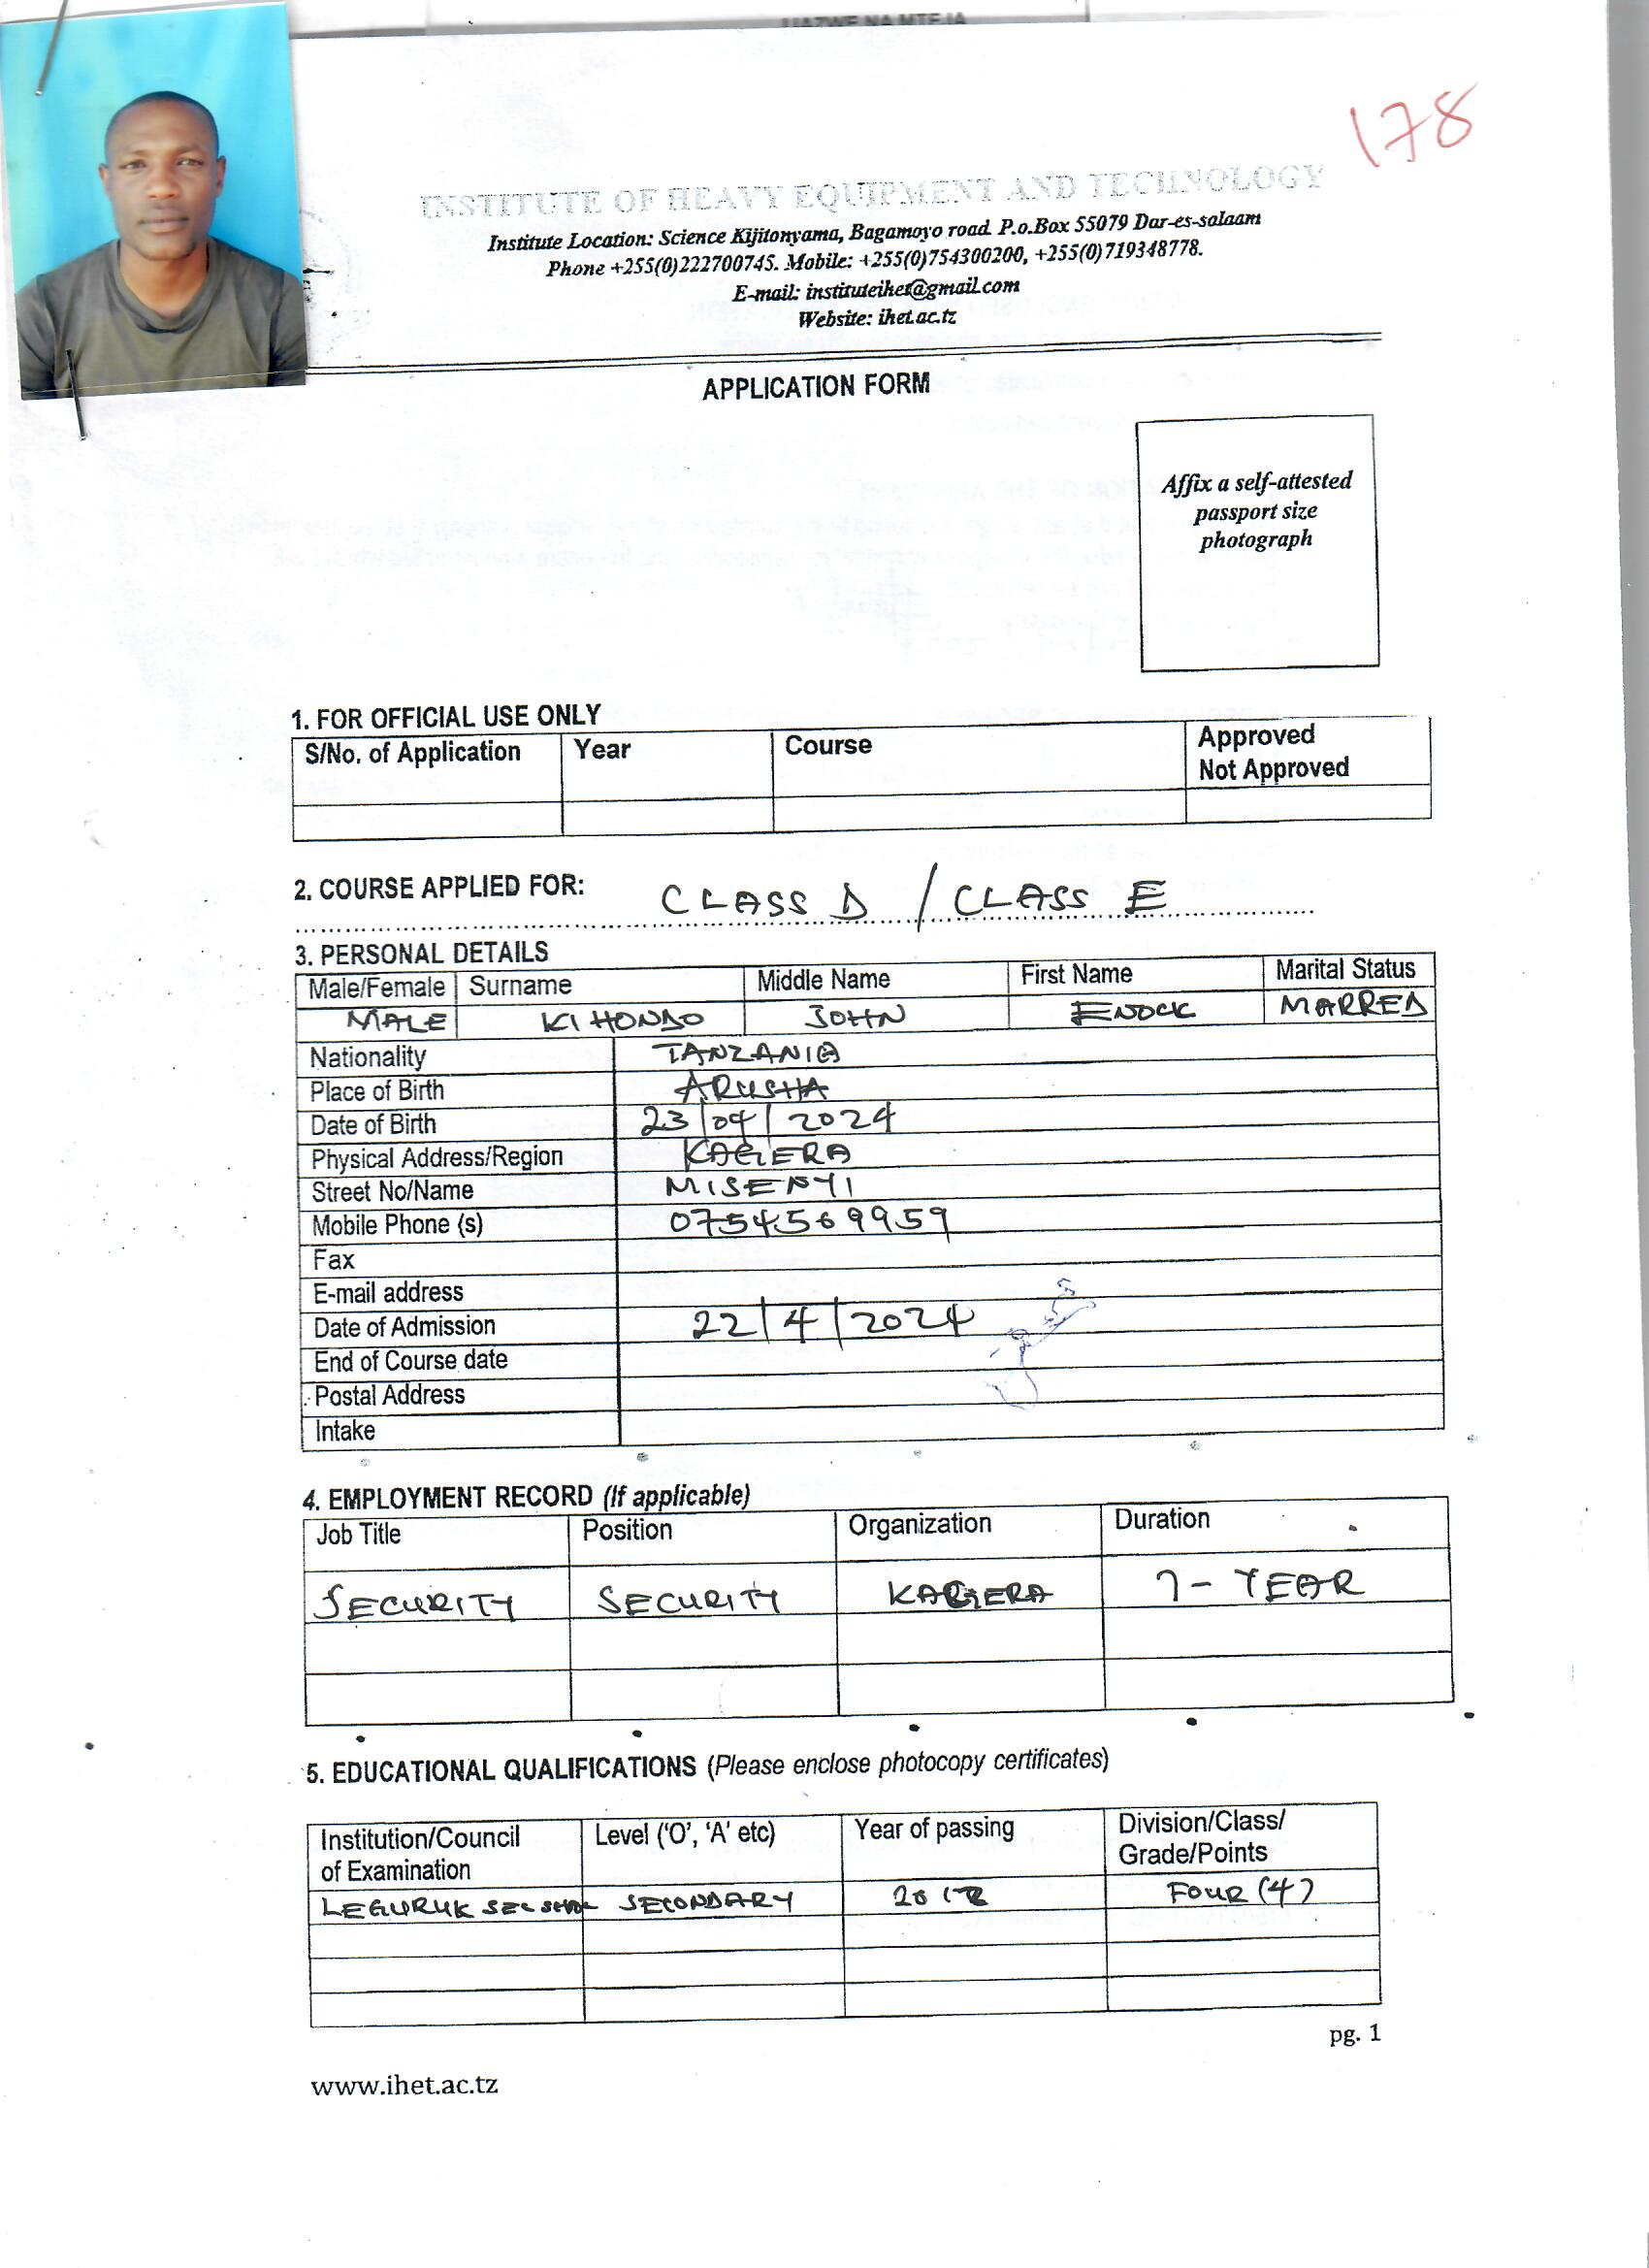 178
INSTITUTE OF HEAVY EQUIPMENT AND TECHNOLOGY
Institute Location: Science Kijitonyama, Bagamoyo road. P.o.Box 55079 Dar-es-salaam
Phone +255(0)222700745. Mobile: +255(0)754300200, +255(0)719348778.
E-mail: instituteihet@gmail.com
Website: ihet.ac.tz
APPLICATION FORM
Affix a self-attested
passport size
photograph
1. FOR OFFICIAL USE ONLY
S/No. of Application Year Course Approved
Not Approved
2. COURSE APPLIED FOR: CLASS D / CLASS E
3. PERSONAL DETAILS
Male/Female Surname Middle Name First Name Marital Status
MALE KIHONDO JOHN ENOCK MARRED
Nationality TANZANIA
Place of Birth ARUSHA
Date of Birth 23/04/2024
Physical Address/Region KAGERA
Street No/Name MISENYI
Mobile Phone (s) 0754569959
Fax
E-mail address
Date of Admission 22/4/2024
End of Course date
Postal Address
Intake
4. EMPLOYMENT RECORD (If applicable)
Job Title Position Organization Duration
SECURITY SECURITY KAGERA 7 - YEAR
5. EDUCATIONAL QUALIFICATIONS (Please enclose photocopy certificates)
Institution/Council Level ('O', 'A' etc) Year of passing Division/Class/
of Examination Grade/Points
LEGURUK SEC SECONDARY FOUR (4)
pg. 1
www.ihet.ac.tz